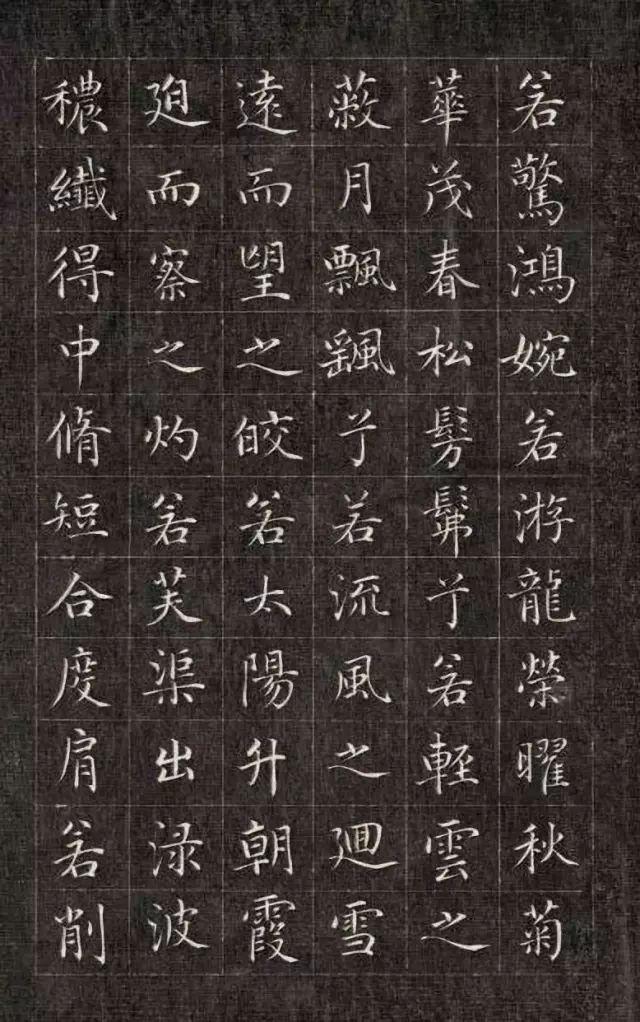 若驚鴻婉若游龍榮曜秋菊
華茂春松髣髴兮若輕雲之
蔽月飄颻兮若流風之迴雪
遠而望之皎若太陽升朝霞
迫而察之灼若芙渠出渌波
穠纖得中脩短合度肩若削